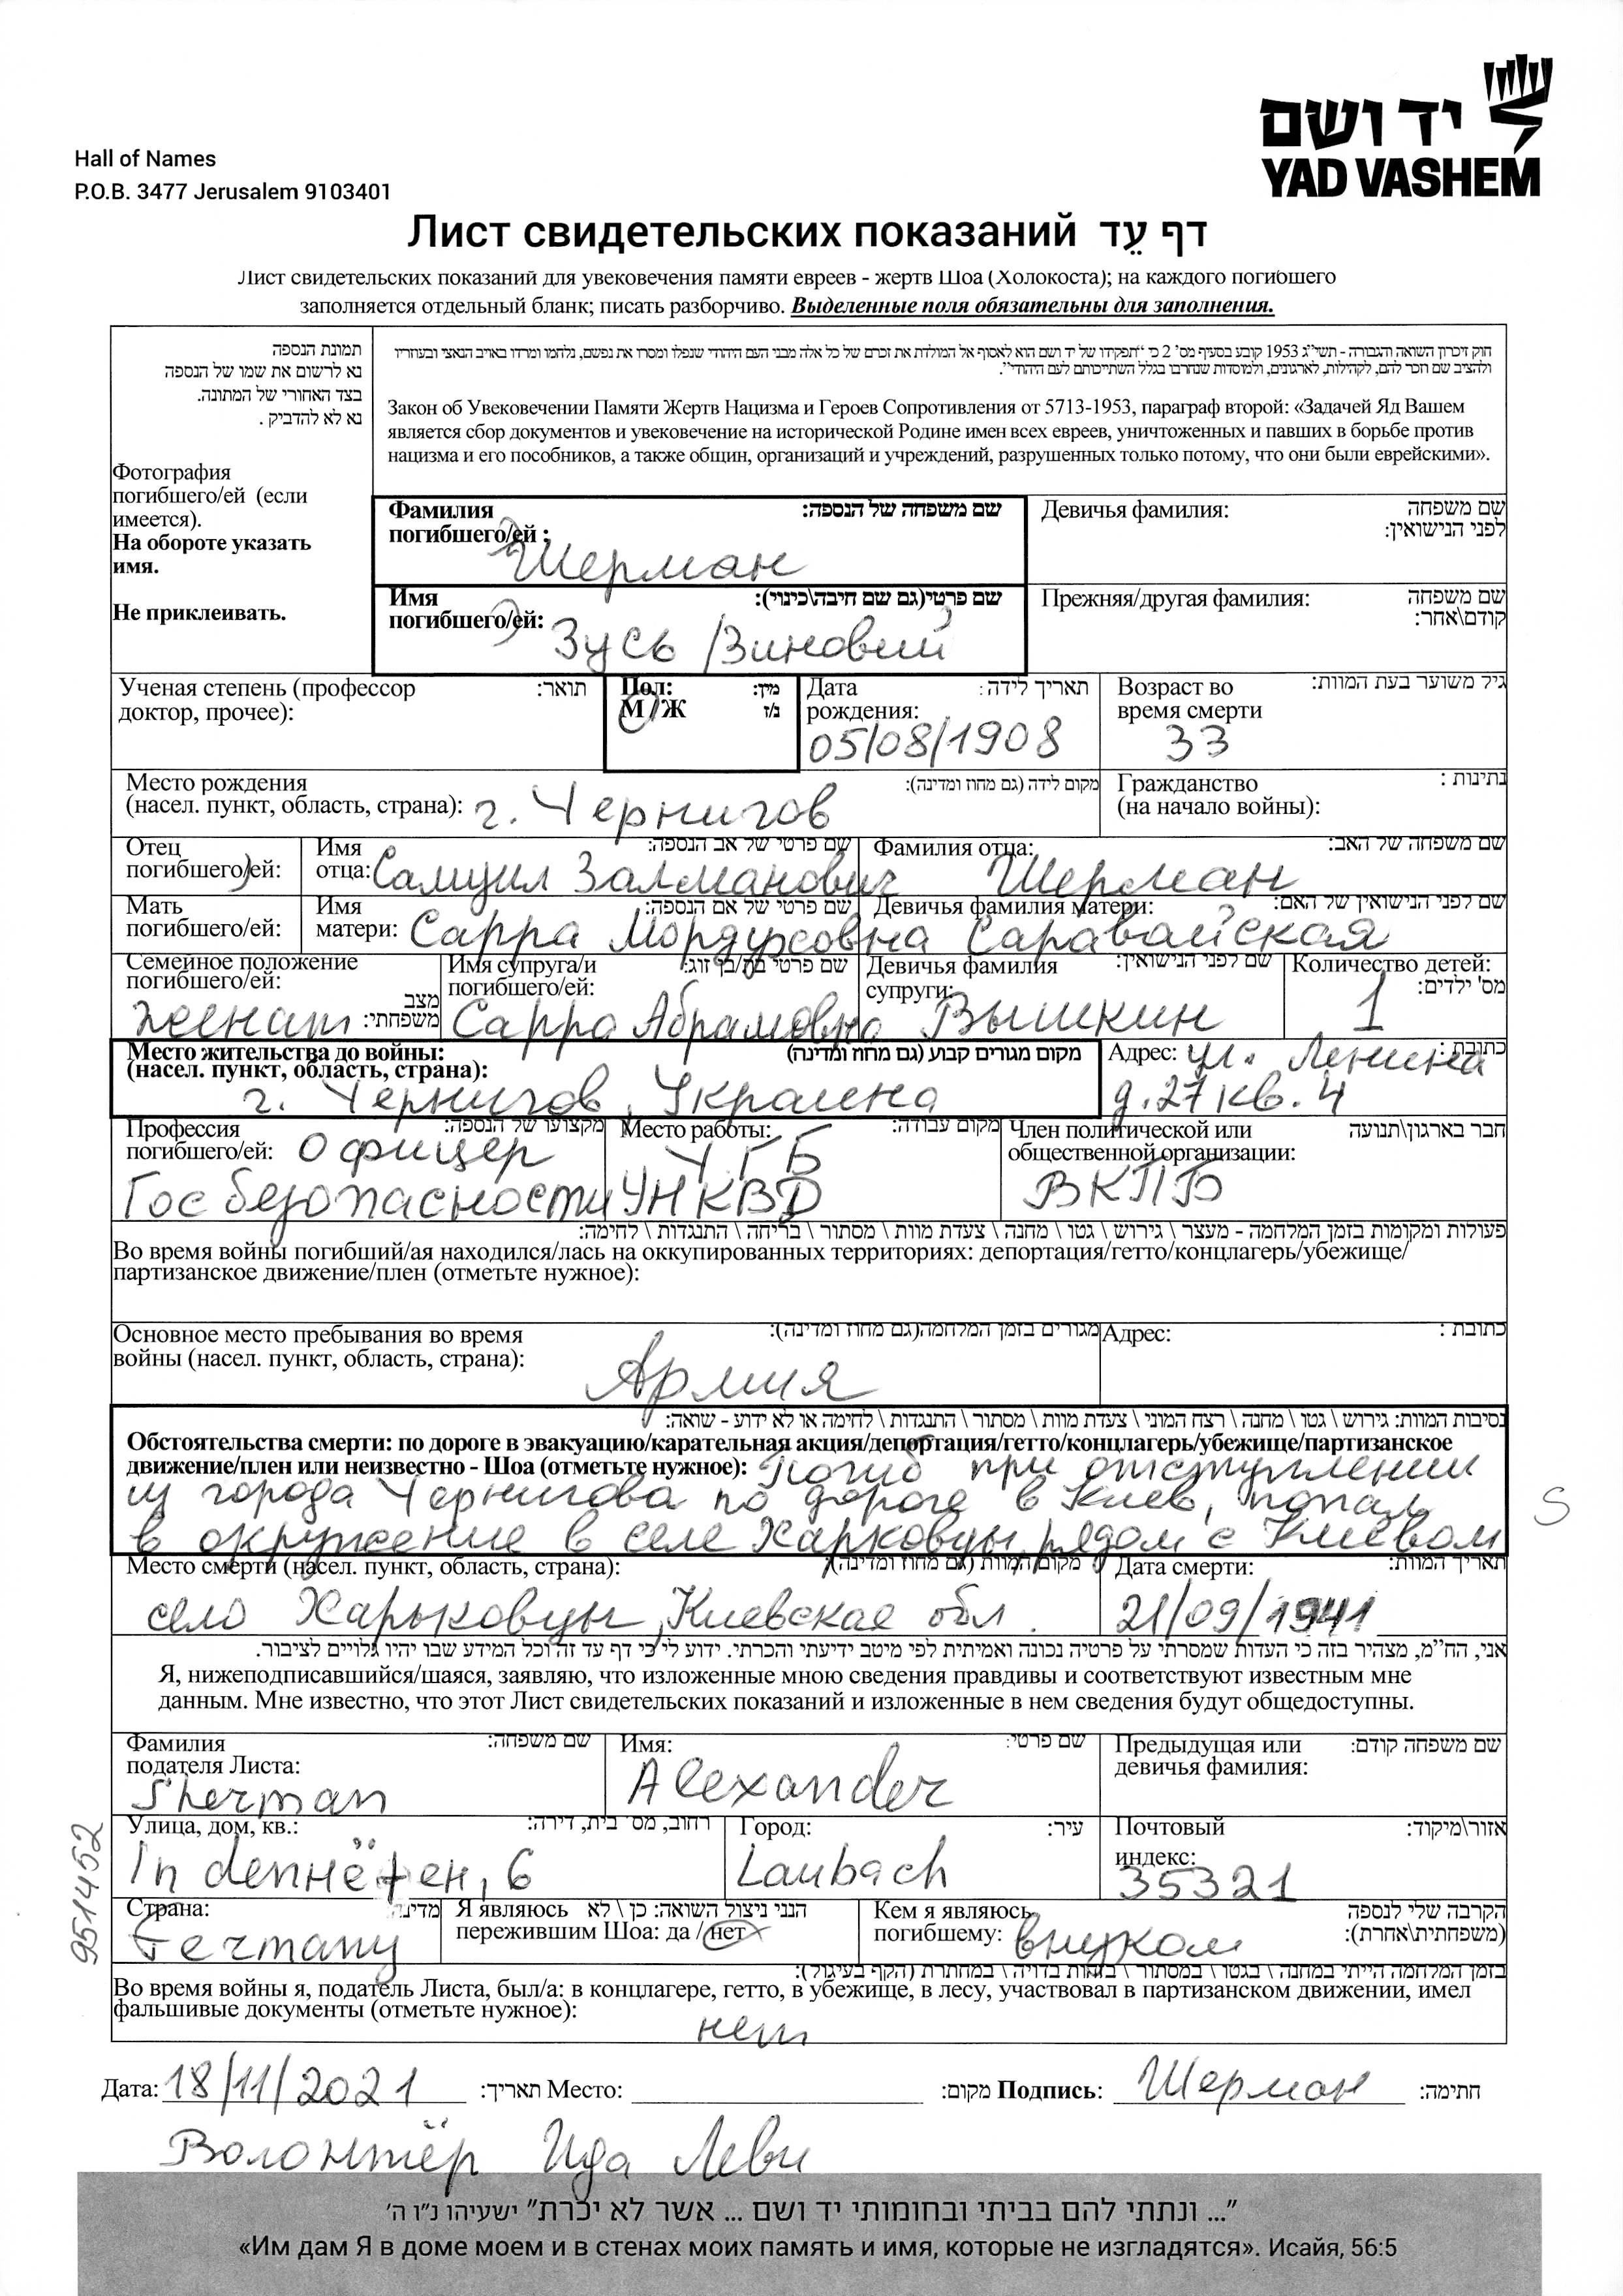 יד ושם
YAD VASHEM
Hall of Names
P.O.B. 3477 Jerusalem 9103401
Лист свидетельских показаний דף עֵד
Лист свидетельских показаний для увековечения памяти евреев - жертв Шоа (Холокоста); на каждого погибшего
заполняется отдельный бланк; писать разборчиво. Выделенные поля обязательны для заполнения.
תמונת הנספה
נא לרשום את שמו של הנספה
בצד האחורי של המתונה.
נא לא להדביק .
Фотография
погибшего/ей (если
имеется).
На обороте указать
имя.
Не приклеивать.
חוק זיכרון השואה והגבורה - תשי"ג 1953 קובע בסעיף מס' 2 כי "תפקידו של יד ושם הוא לאסוף אל המולדת את זכרם של כל אלה מבני העם היהודי שנפלו ומסרו את נפשם, נלחמו ומרדו באויב הנאצי ובעוזריו
ולהציב שם וזכר להם, לקהילות, לארגונים, ולמוסדות שנחרבו בגלל השתייכותם לעם היהודי".
Закон об Увековечении Памяти Жертв Нацизма и Героев Сопротивления от 5713-1953, параграф второй: «Задачей Яд Вашем
является сбор документов и увековечение на исторической Родине имен всех евреев, уничтоженных и павших в борьбе против
нацизма и его пособников, а также общин, организаций и учреждений, разрушенных только потому, что они были еврейскими».
Фамилия שם משפחה של הנספה:
погибшего/ей :
Шерман
Девичья фамилия: שם משפחה
לפני הנישואין:
Имя שם פרטי(גם שם חיבה\כינוי):
погибшего/ей:
Зусь /Зиновий
Прежняя/другая фамилия: שם משפחה
קודם\אחר:
Ученая степень (профессор תואר:
доктор, прочее):
Пол: מין:
М /Ж ז/נ
Дата תאריך לידה :
рождения:
05/08/1908
Возраст во גיל משוער בעת המוות:
время смерти
33
Место рождения מקום לידה (גם מחוז ומדינה):
(насел. пункт, область, страна): г. Чернигов
Гражданство נתינות :
(на начало войны):
Отец
погибшего/ей:
Имя שם פרטי של אב הנספה:
отца: Самуил Залманович
Фамилия отца: שם משפחה של האב:
Шерман
Мать
погибшего/ей:
Имя שם פרטי של אם הנספה:
матери: Сарра Мордуховна
Девичья фамилия матери: שם לפני הנישואין של האם:
Саравайская
Семейное положение
погибшего/ей: מצב
женат משפחתי:
Имя супруга/и שם פרטי בת/בן זוג:
погибшего/ей:
Сарра Абрамовна
Девичья фамилия שם לפני הנישואין:
супруги:
Вышкин
Количество детей:
מס' ילדים:
1
Место жительства до войны: מקום מגורים קבוע (גם מחוז ומדינה)
(насел. пункт, область, страна):
г. Чернигов, Украина
Адрес: ул. Ленина כתובת :
д.27 кв. 4
Профессия מקצועו של הנספה:
погибшего/ей: Офицер
Госбезопасности
Место работы: מקום עבודה:
УГБ
УНКВД
Член политической или חבר בארגון\תנועה
общественной организации:
ВКПБ
פעולות ומקומות בזמן המלחמה - מעצר \ גירוש \ גטו \ מחנה \ צעדת מוות \ מסתור \ בריחה \ התנגדות \ לחימה:
Во время войны погибший/ая находился/лась на оккупированных территориях: депортация/гетто/концлагерь/убежище/
партизанское движение/плен (отметьте нужное):
Основное место пребывания во время מגורים בזמן המלחמה(גם מחוז ומדינה):
войны (насел. пункт, область, страна):
Армия
Адрес: כתובת :
נסיבות המוות: גירוש \ גטו \ מחנה \ רצח המוני \ צעדת מוות \ מסתור \ התנגדות \ לחימה או לא ידוע - שואה:
Обстоятельства смерти: по дороге в эвакуацию/карательная акция/депортация/гетто/концлагерь/убежище/партизанское
движение/плен или неизвестно - Шоа (отметьте нужное): Погиб при отступлении
из города Чернигова по дороге в Киев, попал
в окружение в селе Харковцы, рядом с Киевом
S
Место смерти (насел. пункт, область, страна): מקום המוות (גם מחוז ומדינה)
село Харьковцы, Киевская обл.
Дата смерти: תאריך המוות:
21/09/1941
אני, הח"מ, מצהיר בזה כי העדות שמסרתי על פרטיה נכונה ואמיתית לפי מיטב ידיעתי והכרתי. ידוע לי כי דף עד זה וכל המידע שבו יהיו גלויים לציבור.
Я, нижеподписавшийся/шаяся, заявляю, что изложенные мною сведения правдивы и соответствуют известным мне
данным. Мне известно, что этот Лист свидетельских показаний и изложенные в нем сведения будут общедоступны.
Фамилия שם משפחה:
подателя Листа:
Sherman
Имя: שם פרטי:
Alexander
Предыдущая или שם משפחה קודם:
девичья фамилия:
Улица, дом, кв.: רחוב, מס' בית, דירה:
In 6
Город: עיר:
Laubach
Почтовый אזור\מיקוד:
индекс:
35321
Страна: מדינה:
Germany
Я являюсь הנני ניצול השואה: כן \ לא
пережившим Шоа: да / нет
Кем я являюсь הקרבה שלי לנספה
погибшему: внуком (משפחתית\אחרת):
בזמן המלחמה הייתי במחנה \ בגטו \ במסתור \ בזהות בדויה \ במחתרת (הקף בעיגול):
Во время войны я, податель Листа, был/а: в концлагере, гетто, в убежище, в лесу, участвовал в партизанском движении, имел
фальшивые документы (отметьте нужное):
нет
9514452
Дата: 18/11/2021 תאריך: Место: מקום: Подпись: Шерман חתימה:
Волонтёр Ида Леви
"... ונתתי להם בביתי ובחומותי יד ושם ... אשר לא יכרת" ישעיהו נ"ו ה'
«Им дам Я в доме моем и в стенах моих память и имя, которые не изгладятся». Исайя, 56:5